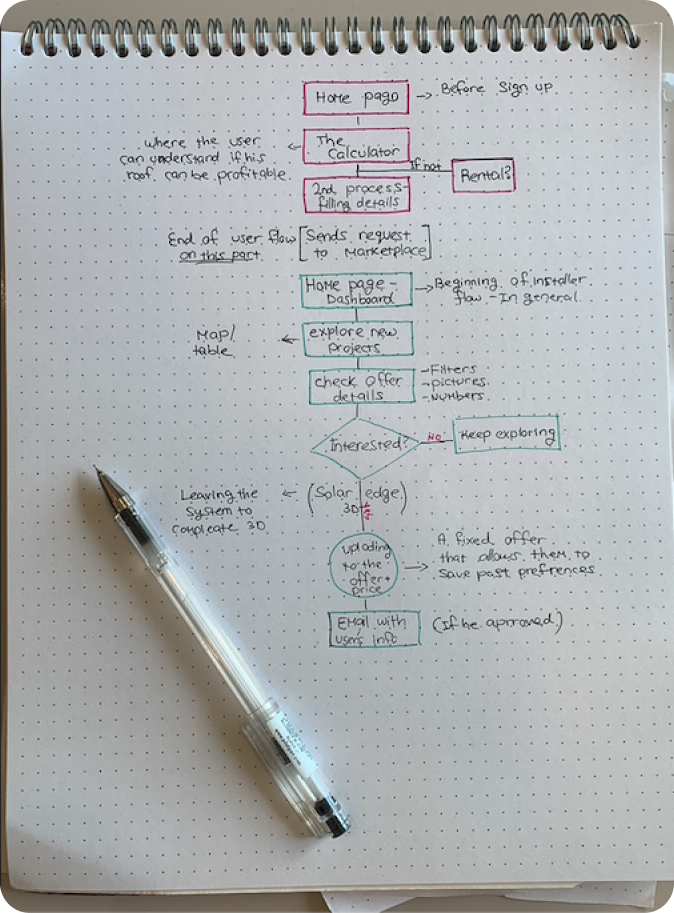 Home page → Before Sign up.
The
Calculator
where the user ←
can understand if his
roof. can be profitable.
If not
Rental?
2nd process-
filling details
End of user flow
on this part.
[Sends request
to Marketplace]
Home page -
Dashboard
→ Beginning of installer
flow - In general
explore new
projects
Map/ ←
table
check offer
details
- Filters
- pictures.
- Numbers.
Interested?
NO
Keep exploring
(Solar edge)
3D
Leaving the ←
system to
compleate 3D
uploding
to the
offer +
price
→ A fixed offer
that allows them to
save past prefrences.
EMail with
user's info
(If he aprroved)